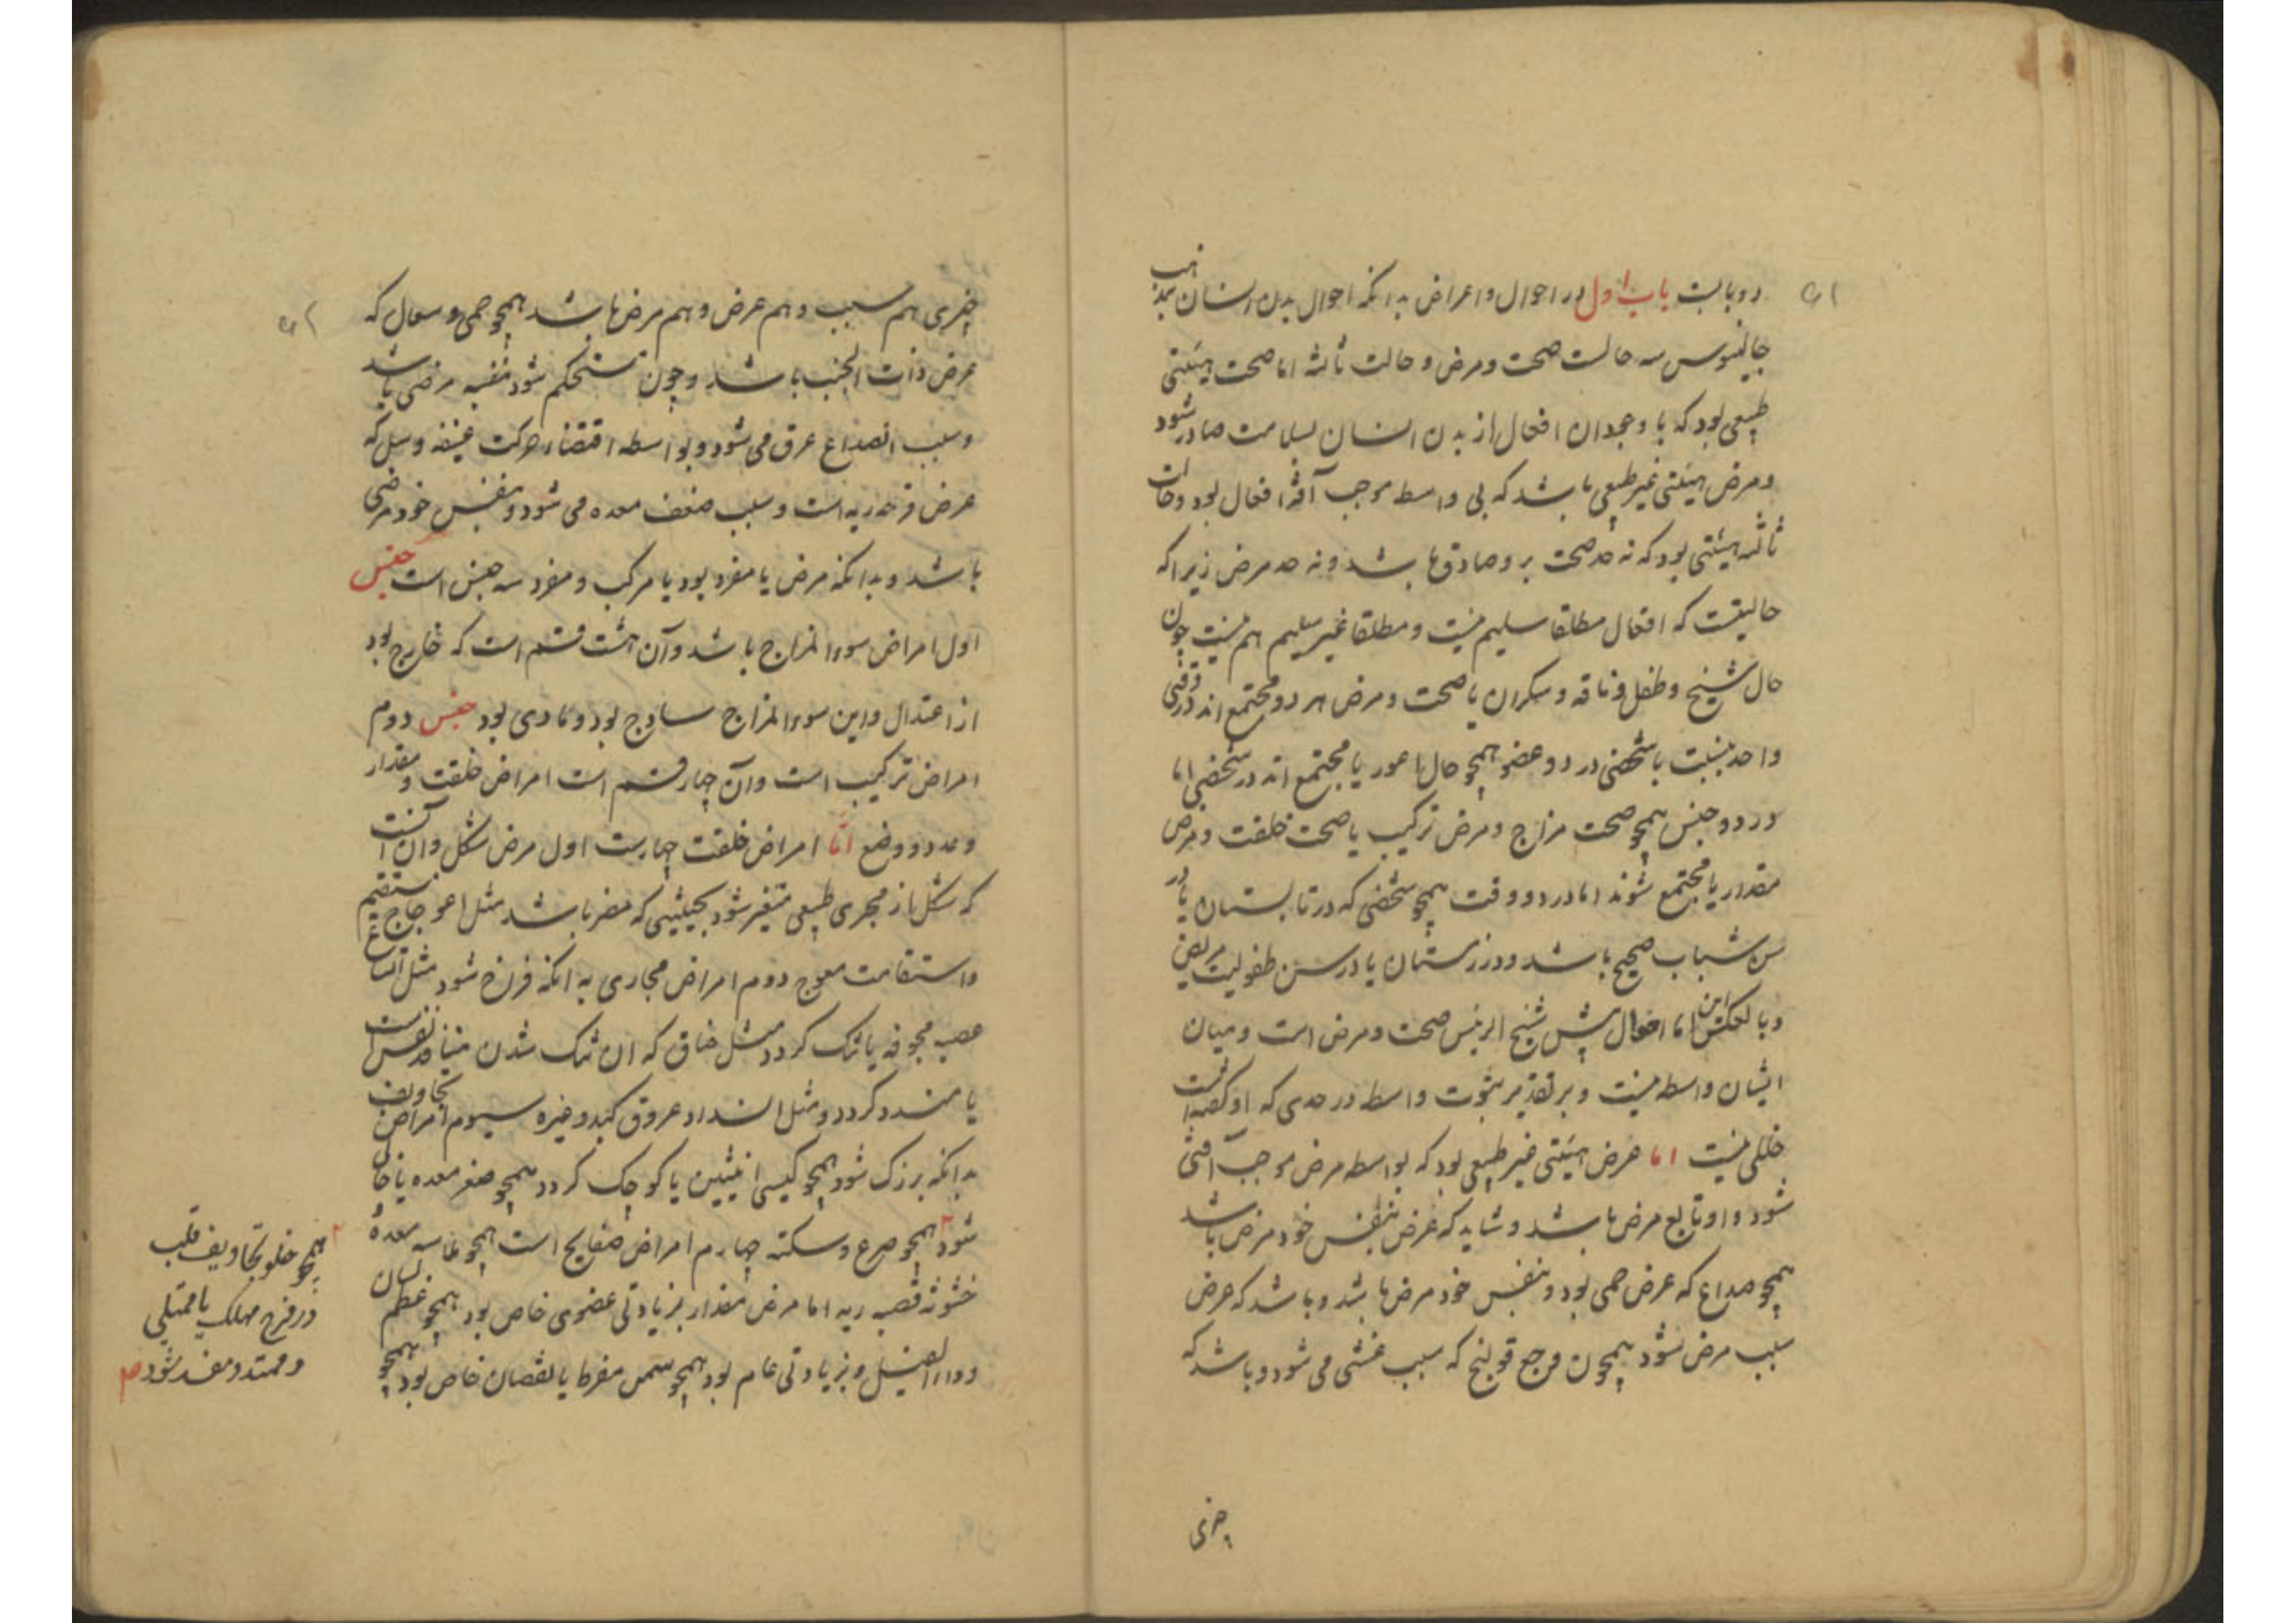 دو بابست باب اول در احوال و اعراض بدانکه احوال بدن انسان بمذهب
جالینوس سه حالت صحت و مرض و حالت ثالثه اما صحت هیئتی
طبیعی بود که با وجدان افعال از بدن انسان بسلامت صادر شود
و مرض هیئتی غیر طبیعی باشد که بی واسطه موجب آفة افعال بود و حالت
ثالثه هیئتی بود که نه حد صحت بر و صادق باشد و نه حد مرض زیرا که
حالیست که افعال مطلقا سلیم نیست و مطلقا غیر سلیم هم نیست چون
حال شیخ و طفل و ناقه و سکران یا صحت و مرض هر دو مجتمع اند در وقتی
واحد بنسبت با شخصی در دو عضو همچو حال اعور یا مجتمع اند در شخصی اما
در دو جنس همچو صحت مزاج و مرض ترکیب یا صحت خلقت و مرض
مقدار یا مجتمع شوند اما در دو وقت همچو شخصی که در تابستان یا در
سن شباب صحیح باشد و در زمستان یا در سن طفولیت مریض
و بالعکس این اما احوال پیش شیخ الرئیس صحت و مرض است و میان
ایشان واسطه نیست و بر تقدیر ثبوت واسطه در حدی که او گفته است
خللی نیست اما عرض هیئتی غیر طبیعی بود که بواسطه مرض موجب آفتی
شود و او تابع مرض باشد و شاید که عرض بنفس خود مرض باشد
همچو صداع که عرض حمی بود و بنفس خود مرض باشد و باشد که عرض
سبب مرض شود همچون وجع قولنج که سبب غشی می شود و باشد که
چیزی
چیزی هم سبب و هم عرض و هم مرض باشد همچو حمی و سعال که
عرض ذات الجنب باشد و چون مستحکم شود بنفسه مرضی باشد
و سبب انصداع عرق می شود و بواسطه اقتضاء حرکت عنیفه و سل که
عرض قرحه ریه است و سبب ضعف معده می شود و بنفس خود مرضی
باشد و بدانکه مرض یا مفرد بود یا مرکب و مفرد سه جنس است جنس
اول امراض سوء المزاج باشد و آن هشت قسم است که خارج بود
از اعتدال و این سوء المزاج سادج بود و مادی بود جنس دوم
امراض ترکیب است و آن چهار قسم است امراض خلقت و مقدار
و عدد و وضع اما امراض خلقت چهارست اول مرض شکل و آن آنست
که شکل از مجری طبیعی متغیر شود بحیثیتی که مضر باشد مثل اعوجاج مستقیم
و استقامت معوج دوم امراض مجاری به انکه فراخ شود مثل اتساع
عصبه مجوفه یا تنک کردد مثل خناق که ان تنک شدن منافذ نفس است
یا منسد کردد و مثل انسداد عروق کبد و غیره سیوم امراض تجاویف
بدانکه بزرک شود همچو کیس انثیین یا کوچک کردد همچو صغر معده یا خالی
شود همچو صرع و سکته چهارم امراض صفایح است همچو ملاسه معده و
خشونة قصبه ریه اما مرض مقدار بزیادتی عضوی خاص بود همچو عظم لسان
و داء الفیل و بزیادتی عام بود همچو سمن مفرط یا نقصان خاص بود همچو
همچو خلو تجاویف قلب
در فرح مهلک یا ممتلی
و ممتد و منسد شود